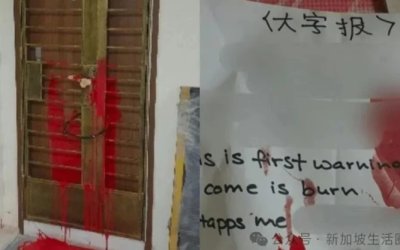 〈大字报〉
s is first warning
come is burn
tapps me
公众号·新加坡生活圈